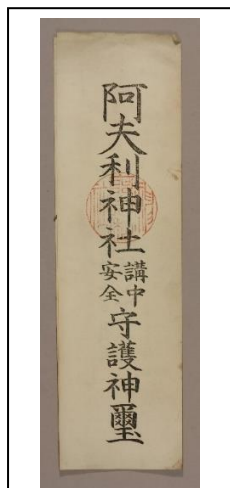 阿夫利神社講中安全守護神璽